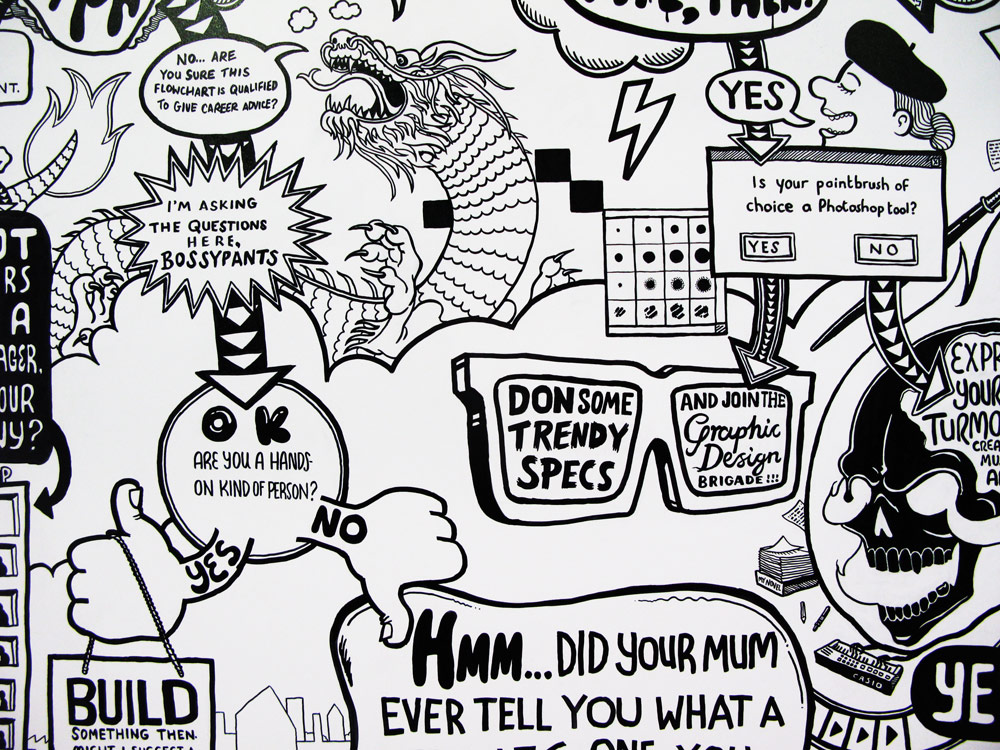 NT.
NO... ARE
YOU SURE THIS
FLOWCHART IS QUALIFIED
TO GIVE CAREER ADVICE?
THEN.
YES
Is your paintbrush of
choice a Photoshop tool?
YES NO
I'M ASKING
THE QUESTIONS
HERE,
BOSSYPANTS
OT
RS
A
AGER.
OUR
WY?
P
OK
ARE YOU A HANDS-
ON KIND OF PERSON?
YES
NO
YES
DON SOME
TRENDY
SPECS
AND JOIN THE
Graphic
Design
BRIGADE!!!
EXPR
YOUR
TURMO
CREA
MU
A
MY NOVEL
CASIO
YE
BUILD
SOMETHING THEN.
MIGHT I SUGGEST A
HMM... DID YOUR MUM
EVER TELL YOU WHAT A
ONE YOU